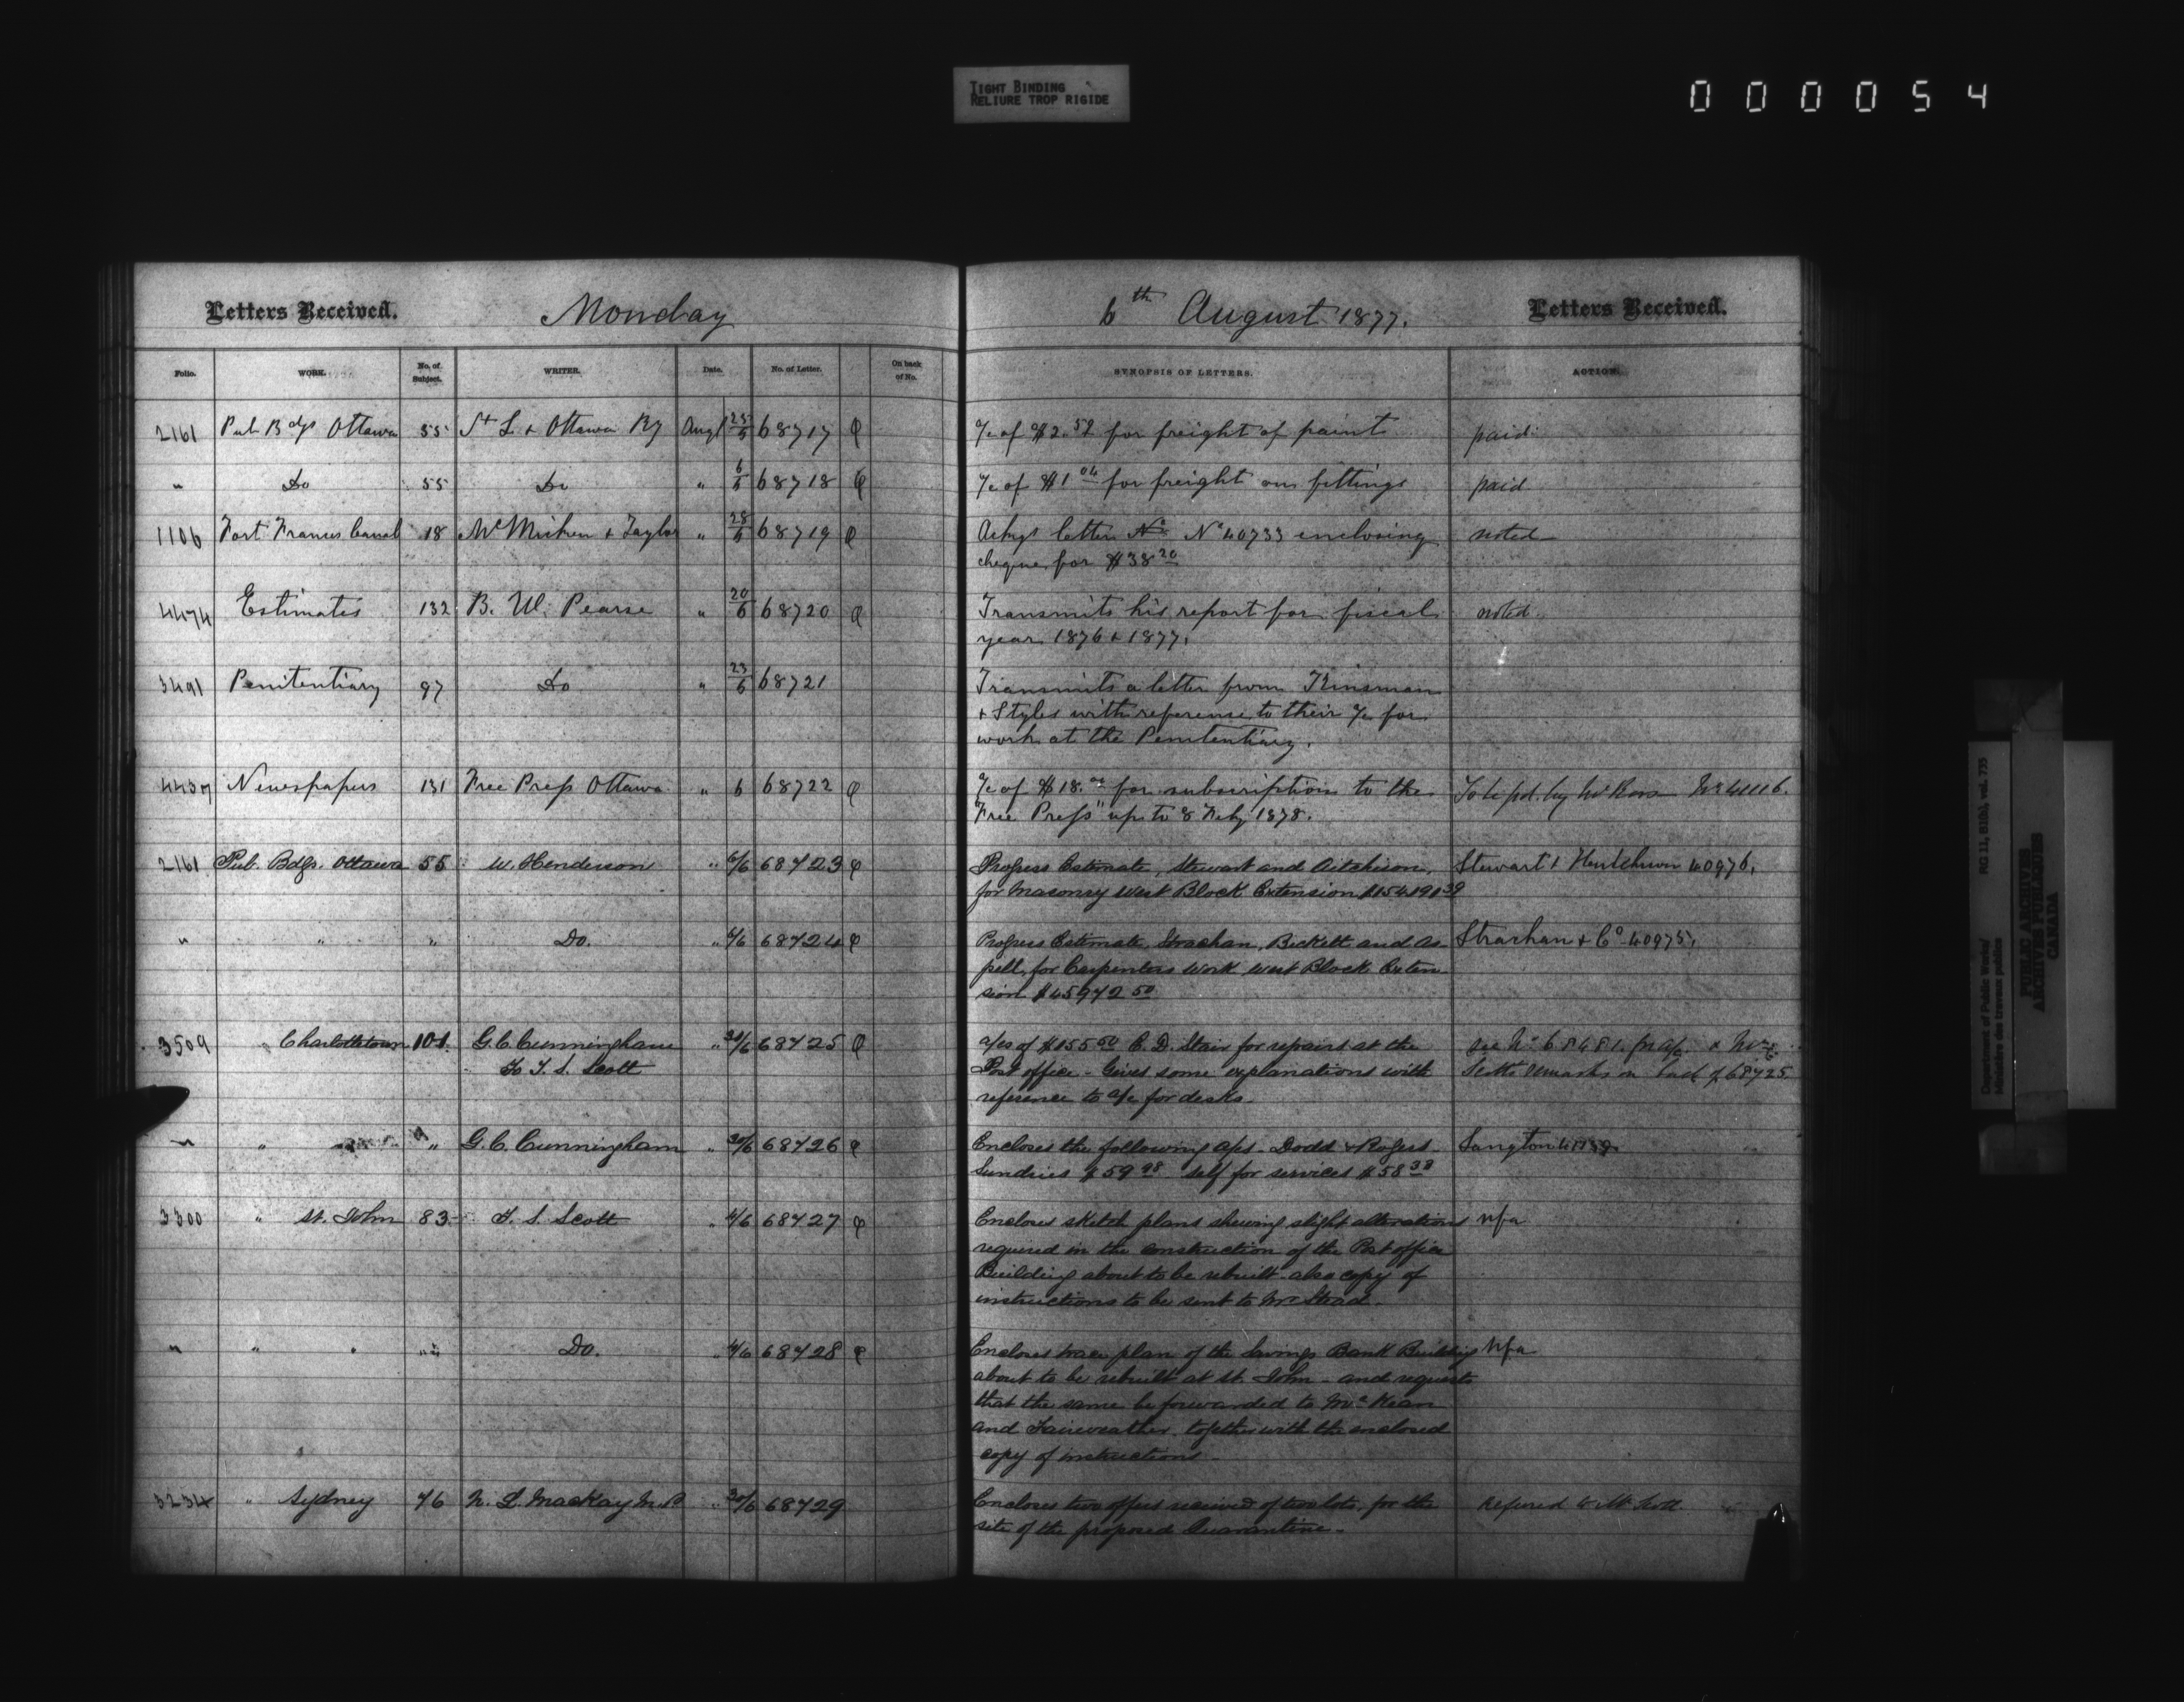 TIGHT BINDING
RELIURE TROP RIGIDE
000054
Letters Received. Monday 6th August 1877. Letters Received.
Folio. WORK. No. of Subject. WRITER. Date. No. of Letter. On back of No. SYNOPSIS OF LETTERS. ACTION.
2161 Pub Bdgs Ottawa 55 St L & Ottawa Ry Augt 25/6 68717 a/c of $2.52 for freight of paint paid
" Do 55 Do " 6/6 68718 a/c of $1 04 for freight on fittings paid
1106 Fort Frances Canal 18 McMicken & Taylor " 28/6 68719 Ackgs letter No No 40733 enclosing noted
cheque for $38 20
4474 Estimates 132 B. W. Pearse " 20/6 68720 Transmits his report for fiscal noted
year 1876 & 1877.
3491 Penitentiary 97 Do " 23/6 68721 Transmits a letter from Kinsman
& Styles with reference to their a/c for
work at the Penitentiary.
4437 Newspapers 131 Free Press Ottawa " 6 68722 a/c of $18.00 for subscription to the To be pd. by Mr Ross No 41116.
"Free Press" up to 8 Feby 1878.
2161 Pub. Bdgs. Ottawa 55 W. Henderson " 6/6 68723 Progress Estimate, Stewart and Aitchison, Stewart & 40976.
for Masonry West Block Extension
" " " Do. " 6/6 68724 Progress Estimate, Strachan, Beckett and As Strachan & Co 40975.
pell, for Carpenters work West Block Exten
sion $45972 50
3509 " Charlottetown 101 G. C. Cunningham " 30/6 68725 a/cs of $155 50 C. D. Stair for repairs at the see No 68481 for a/c & Mr
To T. S. Scott Post office - Gives some explanations with Scotts remarks on back of 68725.
reference to a/c for desks.
" " " G. C. Cunningham " 30/6 68726 Encloses the following a/cs. Dodd & Rogers Langton
Sundries $59 98 self for services $58 33
3300 " St. John 83 T. S. Scott " 4/6 68727 Encloses sketch plans shewing slight alterations nfa
required in the construction of the Post office
Building about to be rebuilt also copy of
instructions to be sent to Mr Stead.
" " " " Do. " 4/6 68728 Encloses plan of the Savings Bank Building nfa
about to be rebuilt at St. John - and requests
that the same be forwarded to McKean
and Fairweather, together with the enclosed
copy of instructions -
3234 " Sydney 76 N. L. MacKay M.P " 30/6 68729 Encloses two offers received of two lots, for the referred to Mr Scott
site of the proposed Quarantine.
Department of Public Works/
Ministère des travaux publics
RG 11, B1(b), vol. 735
PUBLIC ARCHIVES
ARCHIVES PUBLIQUES
CANADA